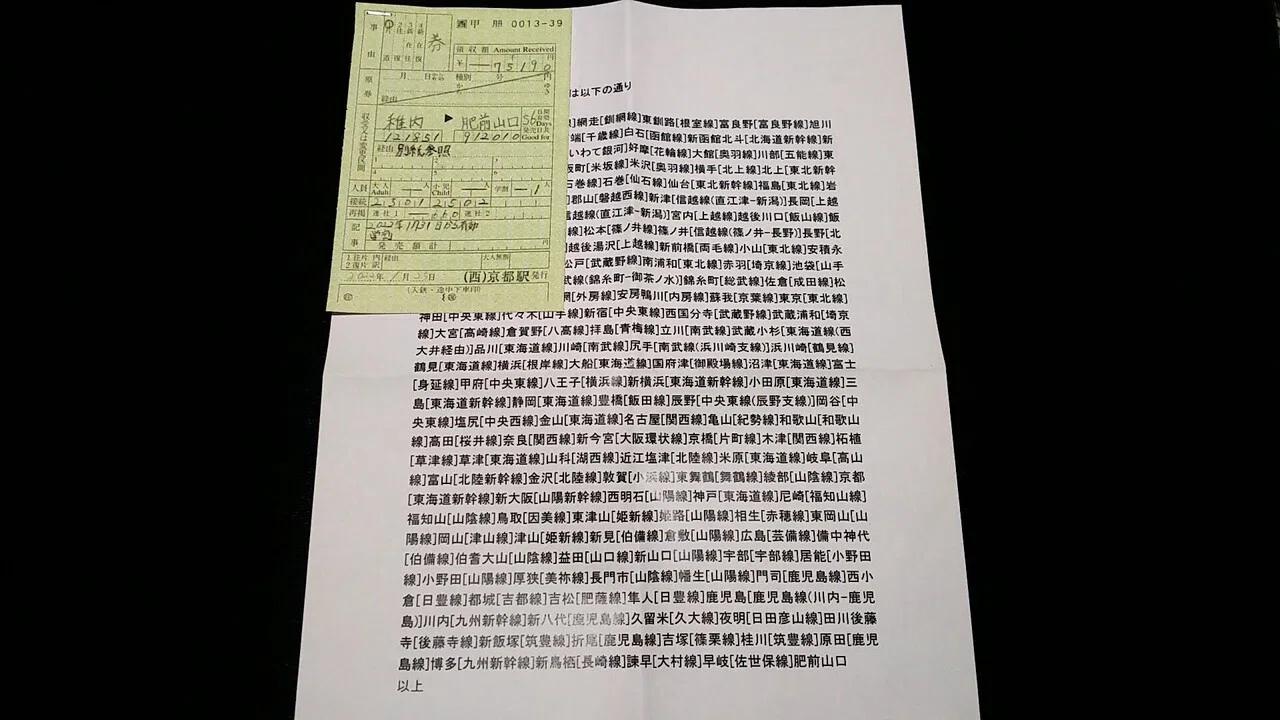 甲 册 0013-39
事由
① 片道
2 往復
3 新在往
4 新在復
券
領収額 Amount Received
¥ ー75190 円
原券
月 日から 種別 号 円
経由 から ゆき
稚内 ▶ 肥前山口
56 日間有効 Days
発売日共 Good for
121851 912010
経由 別紙参照
人員 大人 Adult ー人 小児 Child ー人 学割 ー1人
接続 2501 2502
再掲 連社1 ー660 連社2
記事 2022年1月31日から有効
学割
発売額計 円
1.往片 内 経由
2.復片 訳
大人無割
2022年1月25日 (西)京都駅 発行
(入鋏・途中下車印)
は以下の通り
]網走[釧網線]東釧路[根室線]富良野[富良野線]旭川
端[千歳線]白石[函館線]新函館北斗[北海道新幹線]新
いわて銀河]好摩[花輪線]大館[奥羽線]川部[五能線]東
町[米坂線]米沢[奥羽線]横手[北上線]北上[東北新幹
石巻線]石巻[仙石線]仙台[東北新幹線]福島[東北線]岩
郡山[磐越西線]新津[信越線(直江津-新潟)]長岡[上越
信越線(直江津-新潟)]宮内[上越線]越後川口[飯山線]飯
線]松本[篠ノ井線]篠ノ井[信越線(篠ノ井-長野)]長野[北
越後湯沢[上越線]新前橋[両毛線]小山[東北線]安積永
松戸[武蔵野線]南浦和[東北線]赤羽[埼京線]池袋[山手
武線(錦糸町-御茶ノ水)]錦糸町[総武線]佐倉[成田線]松
[外房線]安房鴨川[内房線]蘇我[京葉線]東京[東北線]
神田[中央東線]代々木[山手線]新宿[中央東線]西国分寺[武蔵野線]武蔵浦和[埼京
線]大宮[高崎線]倉賀野[八高線]拝島[青梅線]立川[南武線]武蔵小杉[東海道線(西
大井経由)]品川[東海道線]川崎[南武線]尻手[南武線(浜川崎支線)]浜川崎[鶴見線]
鶴見[東海道線]横浜[根岸線]大船[東海道線]国府津[御殿場線]沼津[東海道線]富士
[身延線]甲府[中央東線]八王子[横浜線]新横浜[東海道新幹線]小田原[東海道線]三
島[東海道新幹線]静岡[東海道線]豊橋[飯田線]辰野[中央東線(辰野支線)]岡谷[中
央東線]塩尻[中央西線]金山[東海道線]名古屋[関西線]亀山[紀勢線]和歌山[和歌山
線]高田[桜井線]奈良[関西線]新今宮[大阪環状線]京橋[片町線]木津[関西線]柘植
[草津線]草津[東海道線]山科[湖西線]近江塩津[北陸線]米原[東海道線]岐阜[高山
線]富山[北陸新幹線]金沢[北陸線]敦賀[小浜線]東舞鶴[舞鶴線]綾部[山陰線]京都
[東海道新幹線]新大阪[山陽新幹線]西明石[山陽線]神戸[東海道線]尼崎[福知山線]
福知山[山陰線]鳥取[因美線]東津山[姫新線]姫路[山陽線]相生[赤穂線]東岡山[山
陽線]岡山[津山線]津山[姫新線]新見[伯備線]倉敷[山陽線]広島[芸備線]備中神代
[伯備線]伯耆大山[山陰線]益田[山口線]新山口[山陽線]宇部[宇部線]居能[小野田
線]小野田[山陽線]厚狭[美祢線]長門市[山陰線]幡生[山陽線]門司[鹿児島線]西小
倉[日豊線]都城[吉都線]吉松[肥薩線]隼人[日豊線]鹿児島[鹿児島線(川内-鹿児
島)]川内[九州新幹線]新八代[鹿児島線]久留米[久大線]夜明[日田彦山線]田川後藤
寺[後藤寺線]新飯塚[筑豊線]折尾[鹿児島線]吉塚[篠栗線]桂川[筑豊線]原田[鹿児
島線]博多[九州新幹線]新鳥栖[長崎線]諫早[大村線]早岐[佐世保線]肥前山口
以上